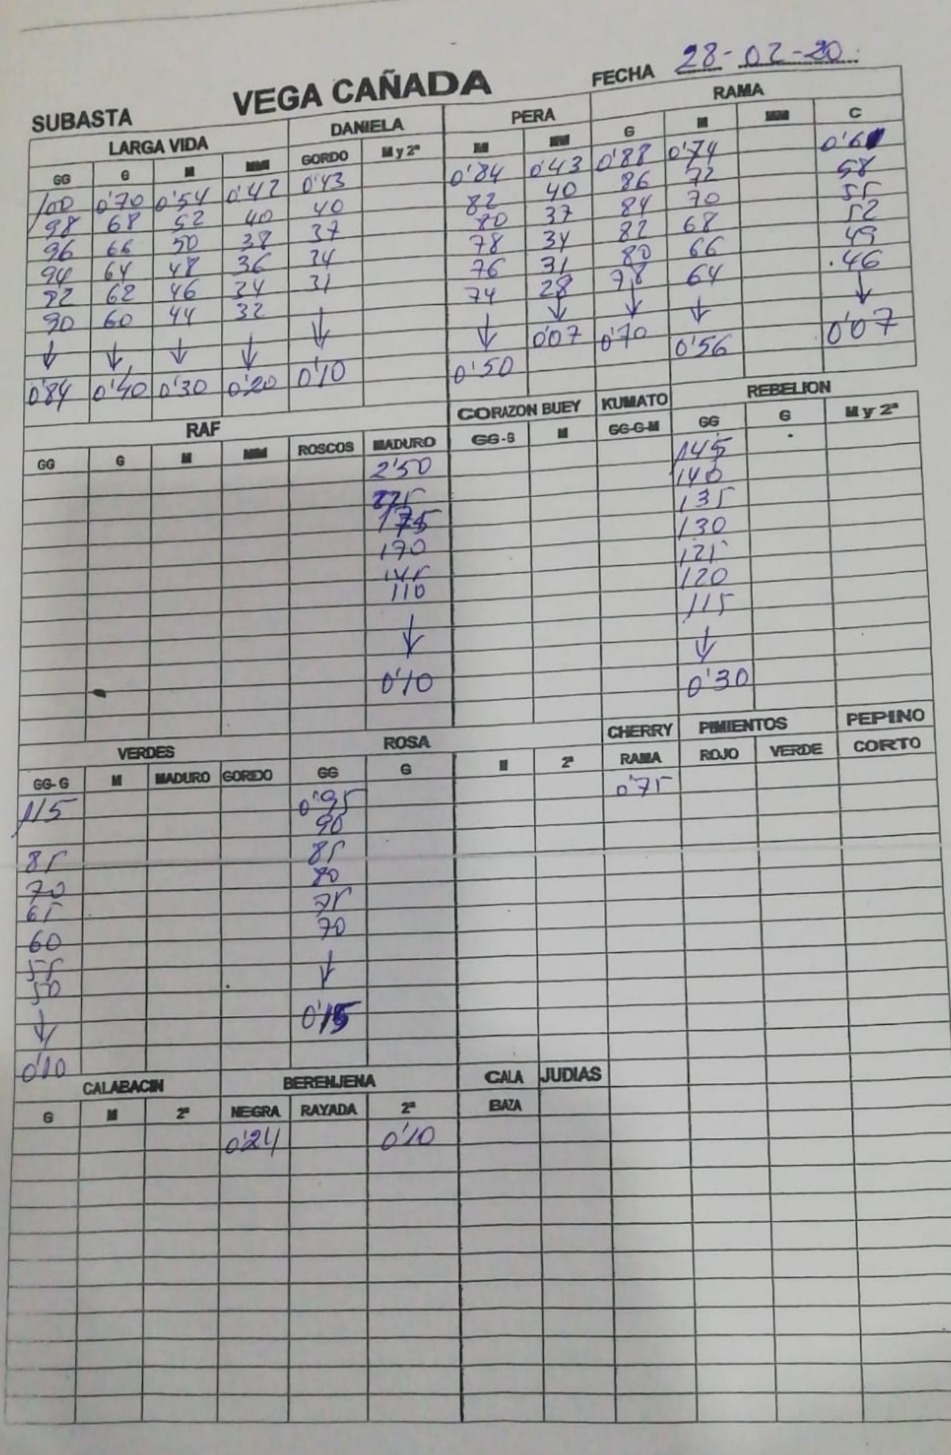 SUBASTA VEGA CAÑADA FECHA 28-02-20
LARGA VIDA DANIELA PERA RAMA
GG G M MM GORDO M y 2ª M MM G M MM C
100 0'70 0'54 0'42 0'43 0'84 0'43 0'88 0'74 0'61
98 68 52 40 40 82 40 86 72 58
96 66 50 38 37 80 37 84 70 55
94 64 48 36 34 78 34 82 68 52
92 62 46 34 31 76 31 80 66 49
90 60 44 32 74 28 78 64 .46
↓ ↓ ↓ ↓ ↓ ↓ ↓ ↓ ↓ ↓
0'84 0'40 0'30 0'20 0'10 0'50 0'07 0'70 0'56 0'07
RAF CORAZON BUEY KUMATO REBELION
GG G M MM ROSCOS MADURO GG-G M GG-G-M GG G M y 2ª
2'50 145
225 140
175 135
170 130
145 125
110 120
115
↓ ↓
0'10 0'30
VERDES ROSA CHERRY PIMIENTOS PEPINO
GG-G M MADURO GORDO GG G M 2ª RAMA ROJO VERDE CORTO
115 0'95 0'75
90
85 85
70 80
65 75
60 70
55
50
↓ ↓
0'10 0'15
CALABACIN BERENJENA CALA JUDIAS
G M 2ª NEGRA RAYADA 2ª BAZA
0'24 0'10